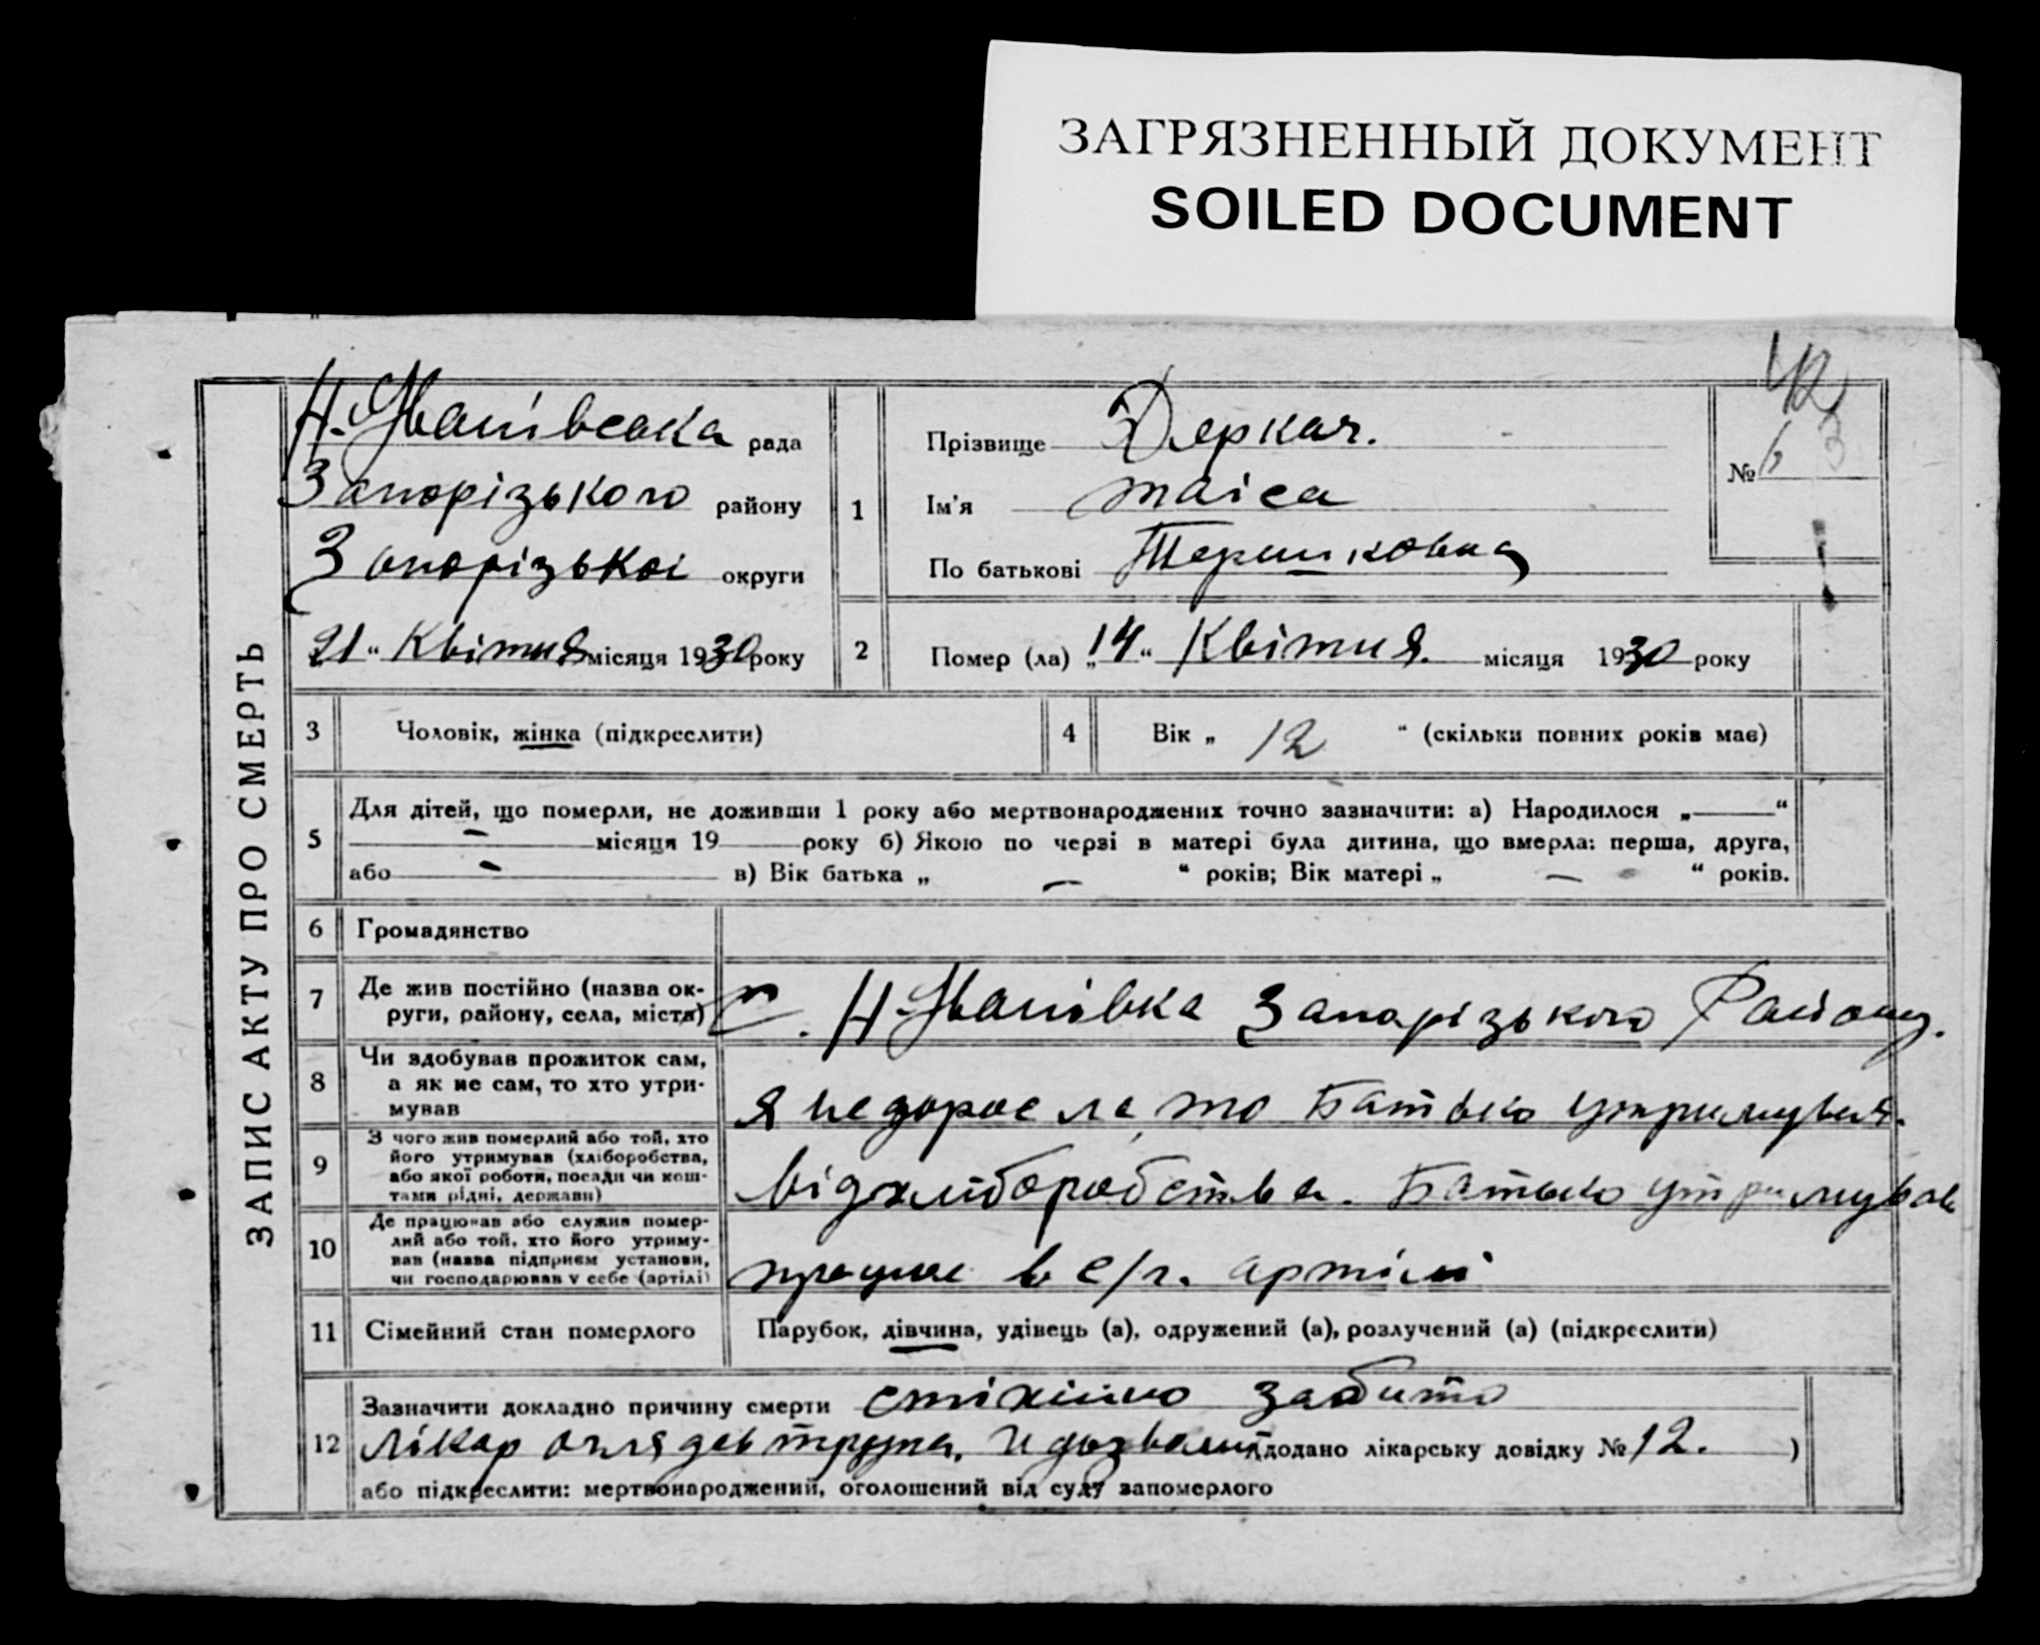 ЗАГРЯЗНЕННЫЙ ДОКУМЕНТ
SOILED DOCUMENT
ЗАПИС АКТУ ПРО СМЕРТЬ
Н. Іванівська рада
Запорізького району
Запорізькоі округи
21 " Квітня місяця 1930 року
1
Прізвище Деркач.
Ім'я таіса
По батькові
№ 6
2
Помер (ла) „14" Квітня. місяця 1930 року
3 Чоловік, жінка (підкреслити)
4 Вік „ 12 " (скільки повних років має)
5 Для дітей, що померли, не доживши 1 року або мертвонароджених точно зазначити: а) Народилося „ — "
— місяця 19 року б) Якою по черзі в матері була дитина, що вмерла: перша, друга,
або — в) Вік батька „ — " років; Вік матері „ — " років.
6 Громадянство
7 Де жив постійно (назва ок-
руги, району, села, міста)
с. Н-Іванівка Запорізького Району.
8 Чи здобував прожиток сам,
а як не сам, то хто утри-
мував
я недоросла, то Батько утримував.
9 З чого жив померлий або той, хто
його утримував (хліборобства,
або якої роботи, посади чи кош-
тами рідні, держави)
від хліборобства. Батько утримував
10 Де працював або служив помер-
лий або той, хто його утриму-
вав (назва підприєм установи,
чи господарював у себе (артілі)
працює в с/г. артілі
11 Сімейний стан померлого
Парубок, дівчина, удівець (а), одружений (а), розлучений (а) (підкреслити)
12 Зазначити докладно причину смерти стіхійно забито
Лікар оглядев трупа, и дозволив (додано лікарську довідку № 12. )
або підкреслити: мертвонароджений, оголошений від суду запомерлого